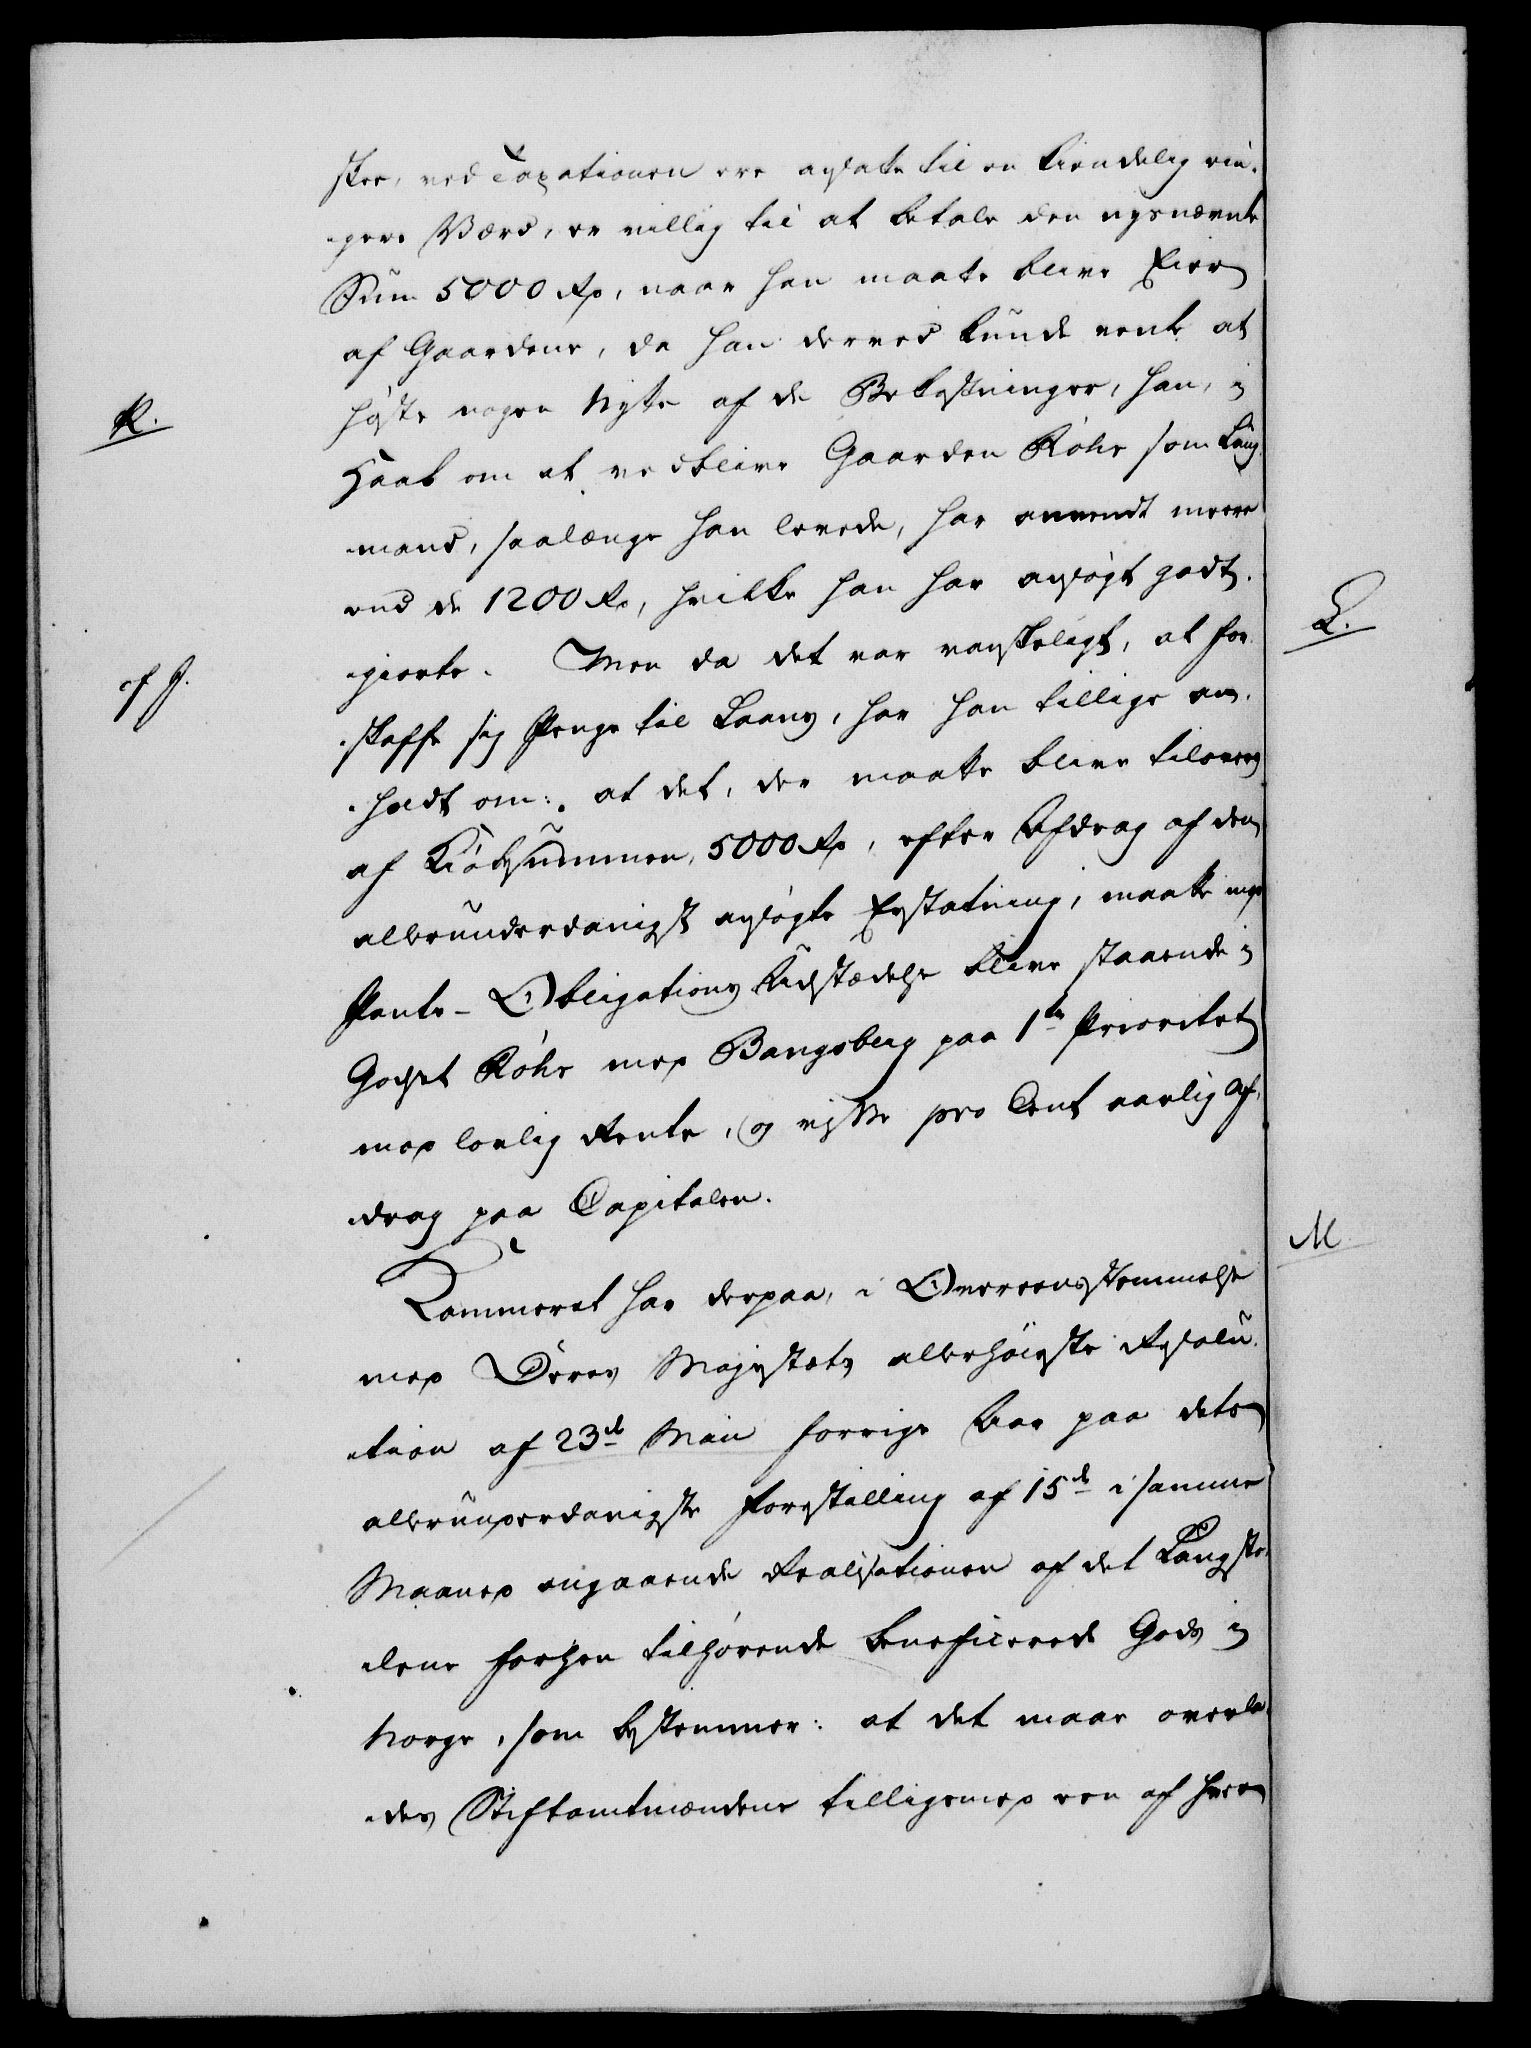 skov, ved Taxationen ere ansatte til en kiendelig rin-
gere Værd, er villig til at betale den nysnævnte
Sum 5000 Rd, naar han maatte blive Eier
af Gaardene, da han derved kunde vente at
høste nogen Nytte af de Bekostninger, han, i
K.
Haab om at vedblive Gaarden Röhr som Leng-
mand, saalænge han levede, har anvendt meere
end de 1200 Rd, hvilke han har ansögt godt-
giorte. Men da det var vanskeligt, at for-
cf J.
skaffe sig Penge til Laans, har han tillige an-
holdt om: at det, der maatte blive tilovers
af Kiöbesummen, 5000 Rd, efter Afdrag af den
allerunderdanigst ansögte Erstatning, maatte mod
Pante-Obligations Udstædelse blive staaende i
Godset Röhr med Bangsberg paa 1te Prioritet
med lovlig Rente, og visse pro Cent aarlig Af-
drag paa Capitalen.
Kammeret har derpaa, i Overeensstemmelse
med Deres Majestæts allerhöieste Resolu-
tion af 23de Maii forrige Aar paa dets
allerunderdanigste Forestilling af 15de i samme
Maaned angaaende Realisationen af det Lengsto-
lene forhen tilhörende beneficerede Gods i
Norge, som bestemmer: at det maae overla-
des Stiftamtmændene tilligemed een af hver
L.
M.